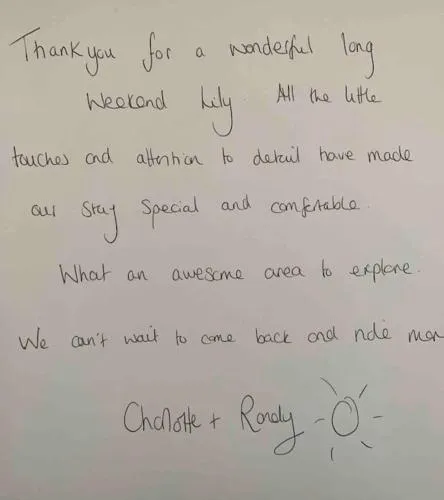 Thank you for a wonderful long
Weekend Lily All the little
touches and attention to detail have made
our stay special and comfortable.
What an awesome area to explore.
We can't wait to come back and ride
Charlotte + Randy